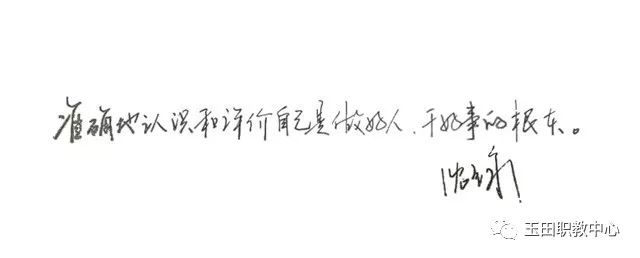 准确地认识和评价自己是做好人、干好事的根本。
玉田职教中心